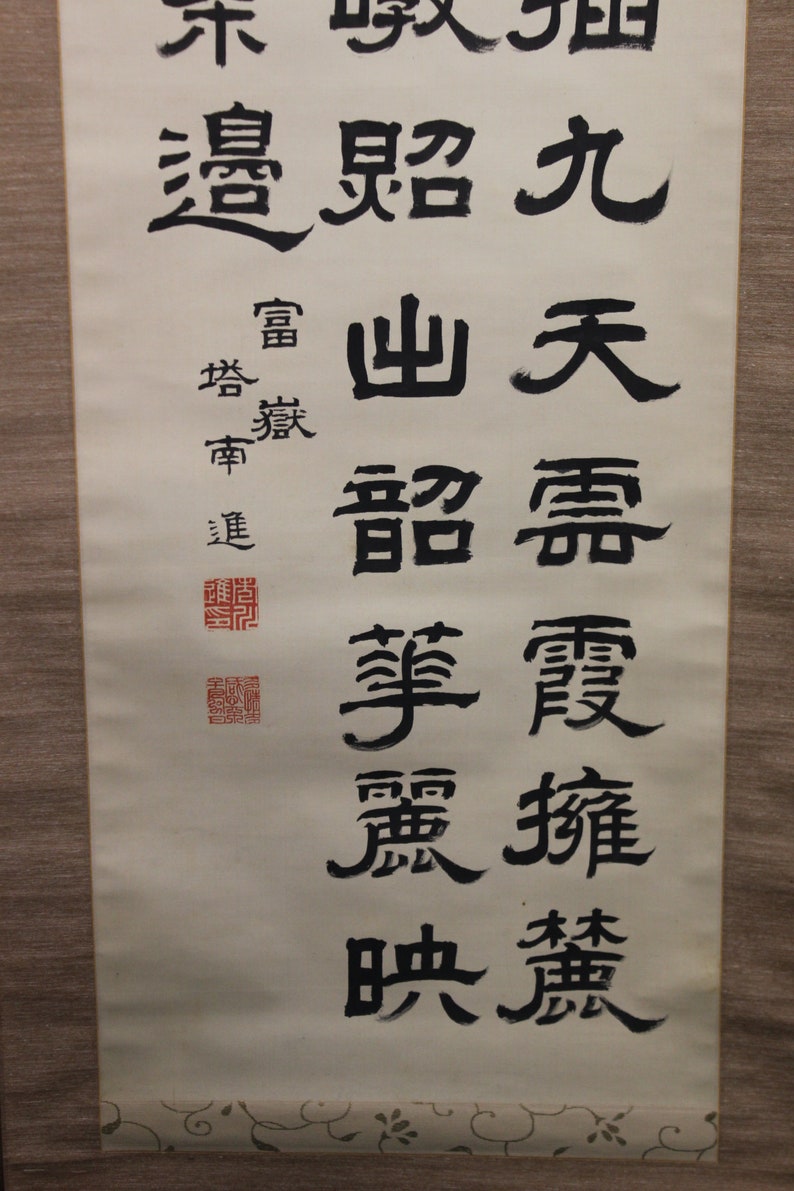 九天雲霞擁麓
照出韶華麗映
邊
富嶽
塔南進